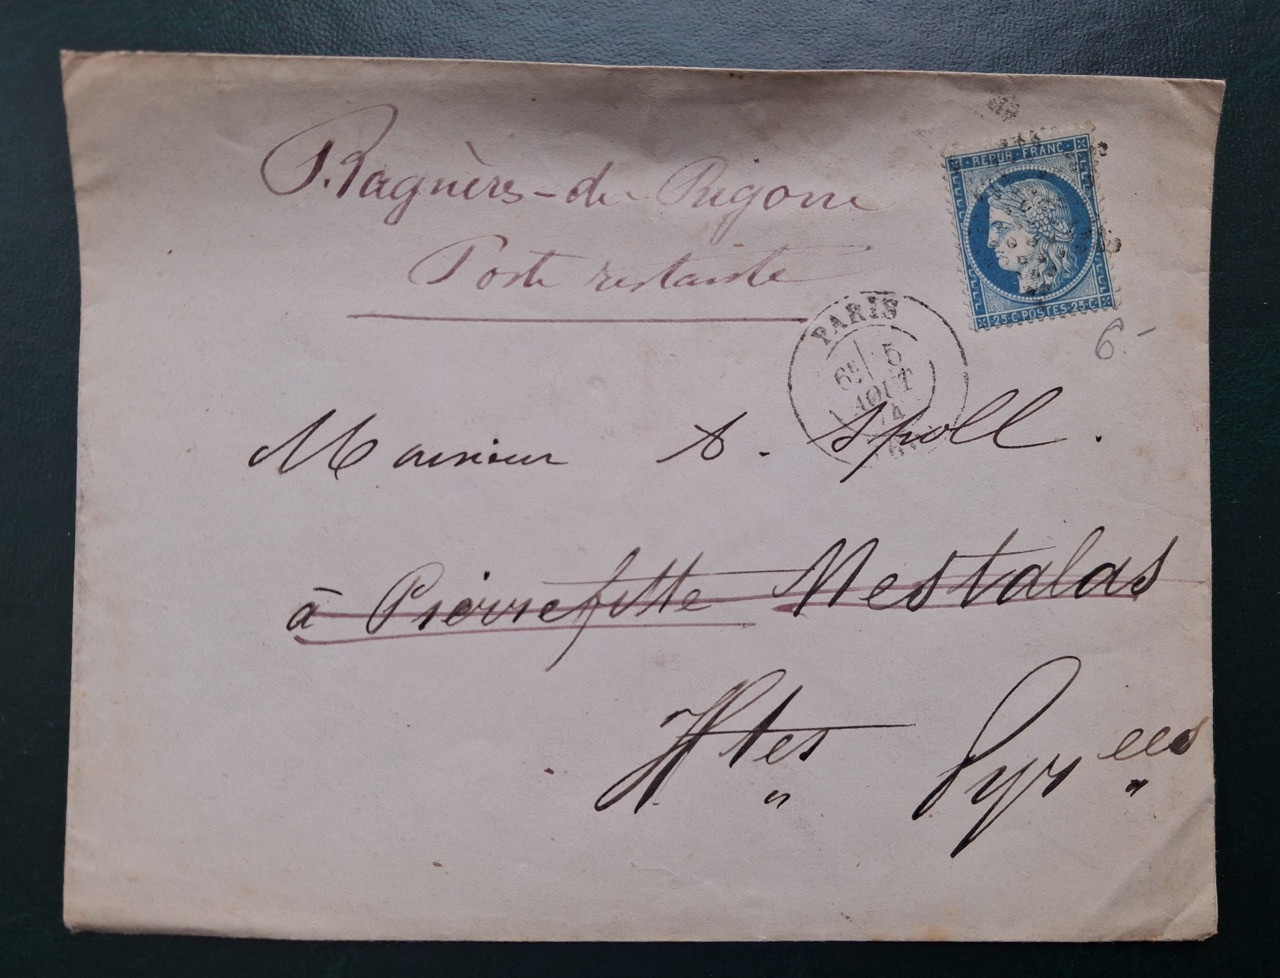 Bagnères-de-Bigorre
Poste restante
REPUB · FRANC ·
25 · C · POSTES · 25 · C
6.-
PARIS
6E 5
AOUT
74
Monsieur A. Spoll.
à Pierrefitte Nestalas
Htes Pyrées